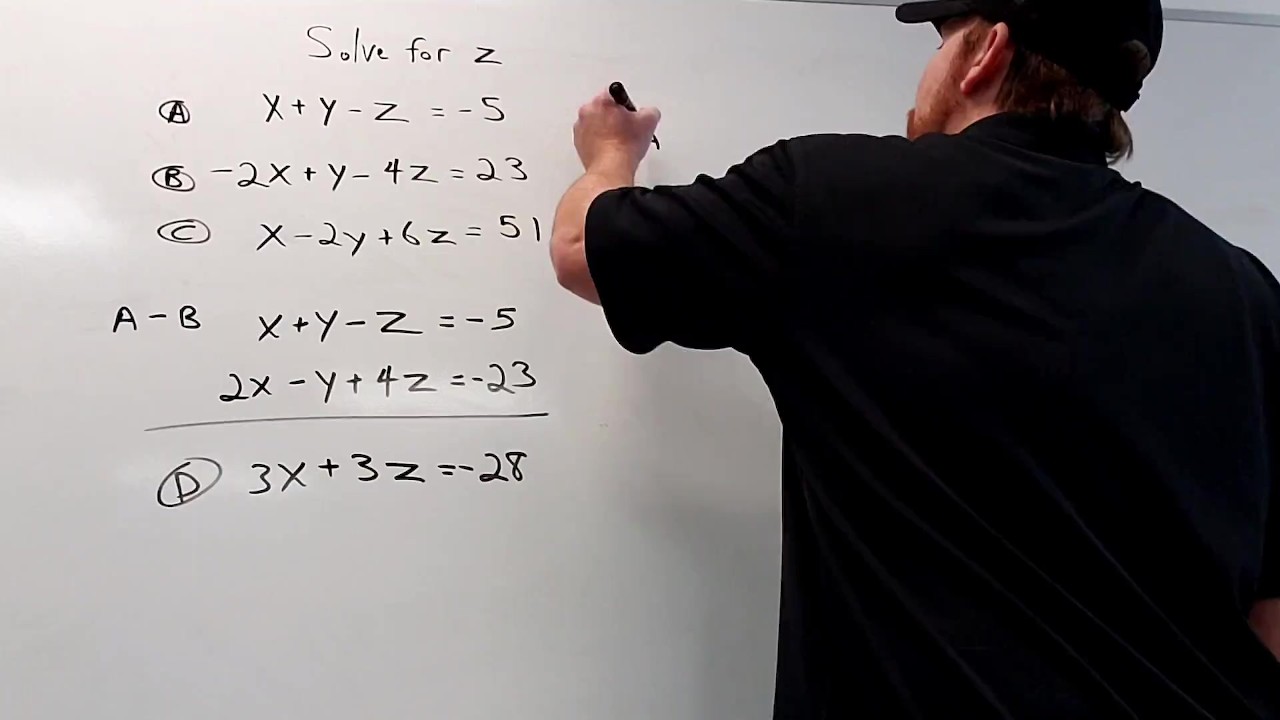 Solve for z
A x + y - z = -5
B -2x + y - 4z = 23
C x - 2y + 6z = 51
A - B x + y - z = -5
2x - y + 4z = -23
D 3x + 3z = -28